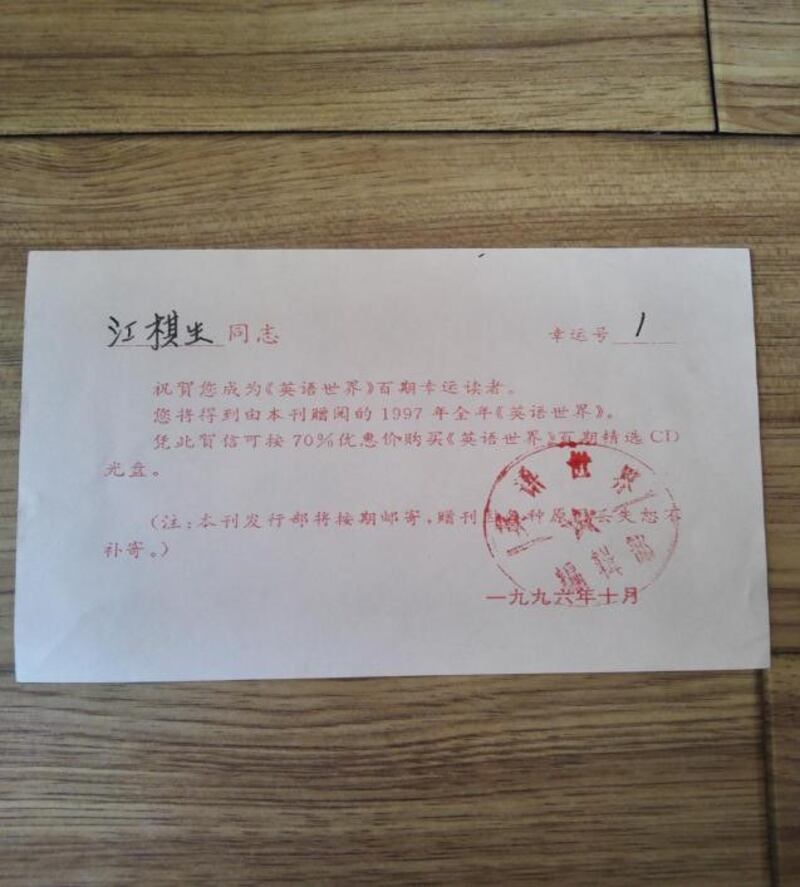 江棋生 同志 幸运号 1
祝贺您成为《英语世界》百期幸运读者。
您将得到由本刊赠阅的1997年全年《英语世界》。
凭此贺信可按70%优惠价购买《英语世界》百期精选CD
光盘。
(注:本刊发行部将按期邮寄,赠刊 种原 丢失恕不
补寄。)
英语世界
编辑部
一九九六年十月